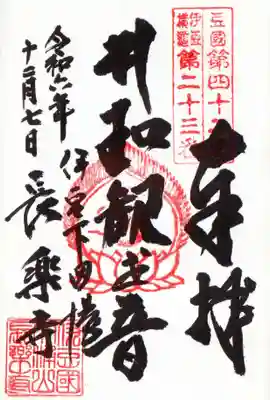 豆國第四十
伊豆横道第二十三
奉拝
平和観世音
伊豆下田
長楽寺
令和六年
十二月七日